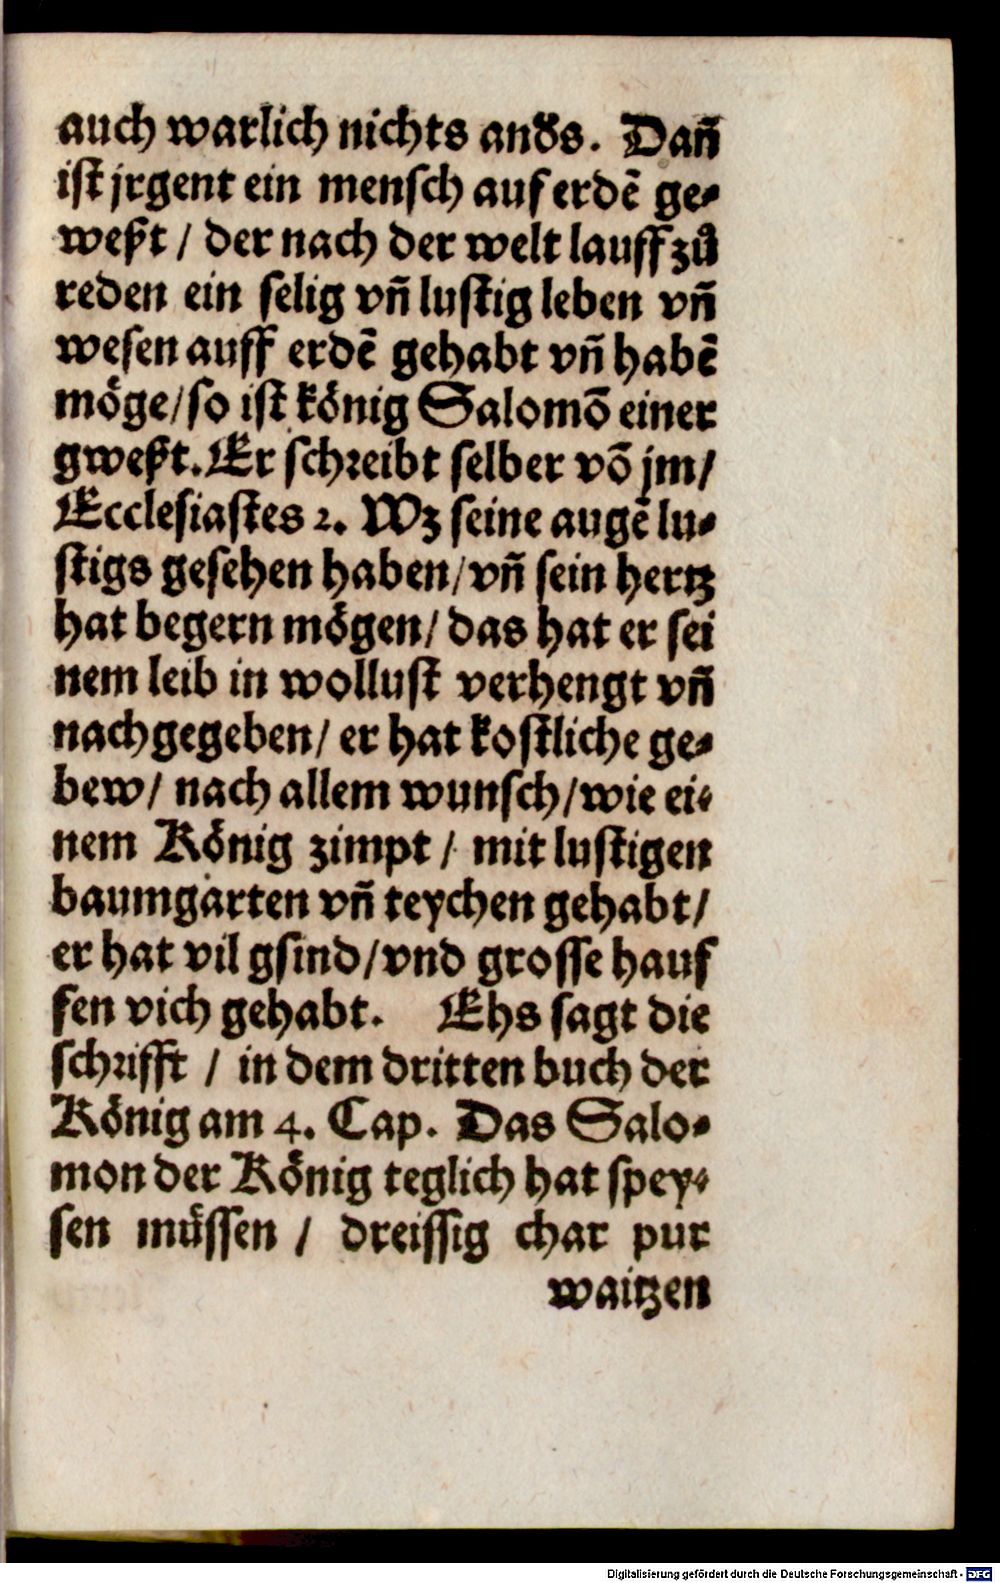 auch warlich nichts anđs. Dañ
ist jrgent ein mensch auf erdẽ ge-
weßt / der nach der welt lauff zů
reden ein selig vñ lustig leben vñ
wesen auff erdẽ gehabt vñ habẽ
möge / so ist könig Salomõ einer
gweßt. Er schreibt selber võ jm /
Ecclesiastes 2. Wz seine augẽ lu-
stigs gesehen haben / vñ sein hertz
hat begern mögen / das hat er sei
nem leib in wollust verhengt vñ
nachgegeben / er hat kostliche ge-
bew / nach allem wunsch / wie ei-
nem König zimpt / mit lustigen
baumgarten vñ teychen gehabt /
er hat vil gsind / vnd grosse hauf
fen vich gehabt. Ehs sagt die
schrifft / in dem dritten buch der
König am 4. Cap. Das Salo-
mon der König teglich hat spey-
sen müssen / dreissig char pur
waitzen
Digitalisierung gefördert durch die Deutsche Forschungsgemeinschaft - DFG